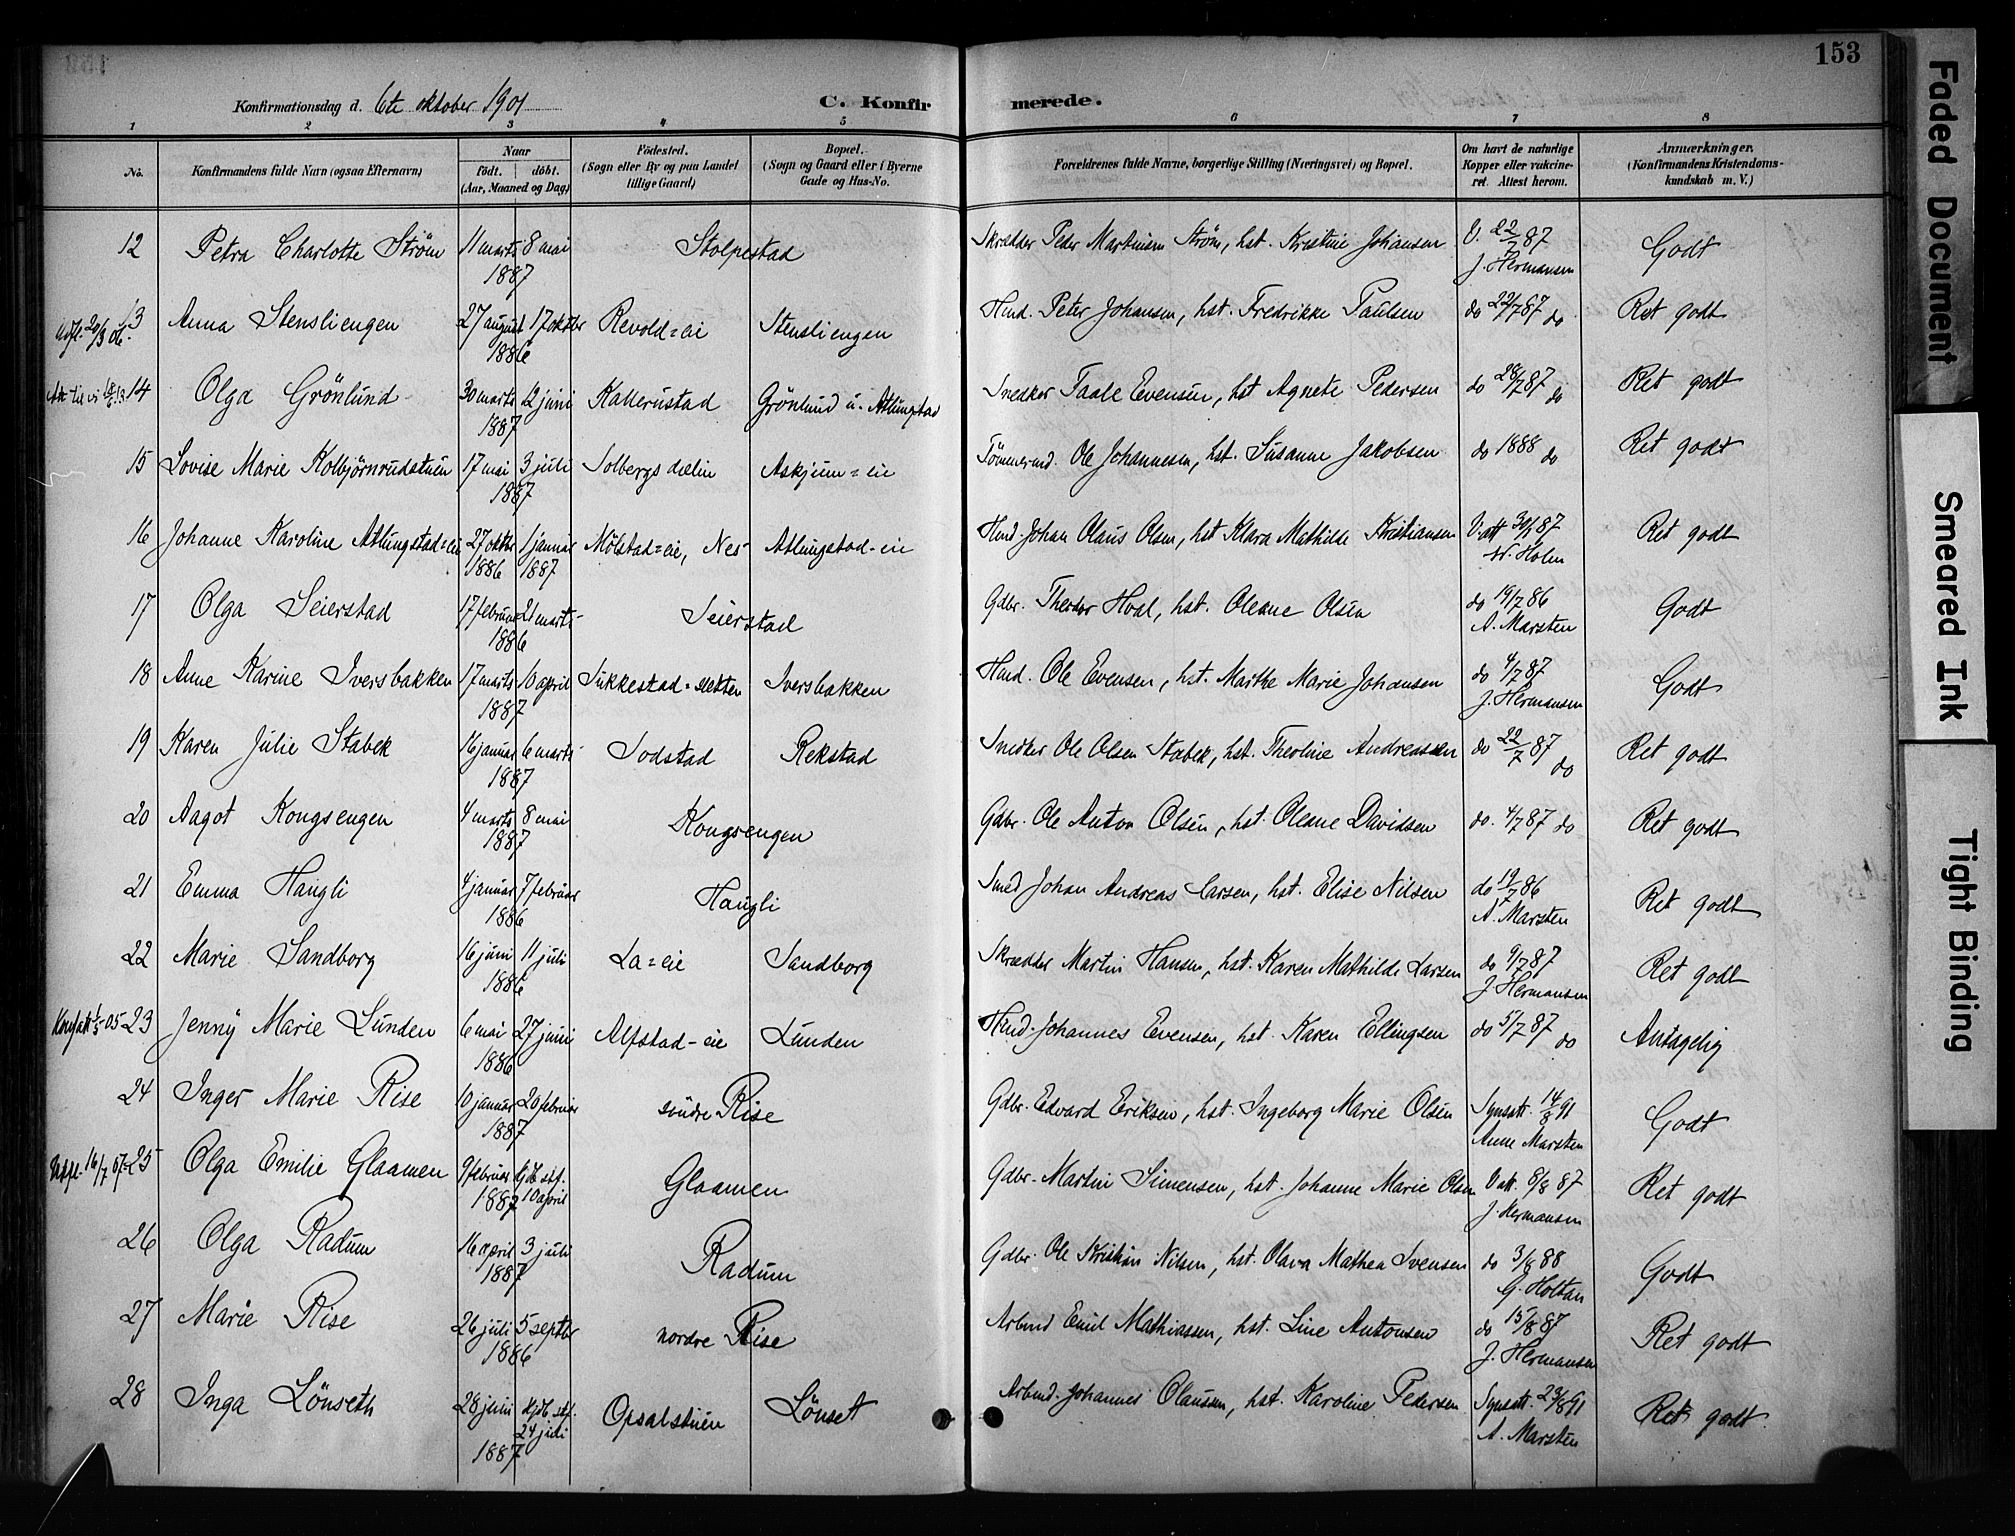 153
Konfirmationsdag d. 6te oktober 1901
C. Konfirmerede.
1 2 3 4 5 6 7 8
No. Konfirmandens fulde Navn (ogsaa Efternavn) Naar födt. döbt. (Aar, Maaned og Dag) Födested. (Sogn eller By og paa Landet tillige Gaard) Bopæl. (Sogn og Gaard eller i Byerne Gade og Hus-No. Forældrenes fulde Navne, borgerlige Stilling (Næringsvei) og Bopæl. Om havt de naturlige Kopper eller vakcineret. Attest herom. Anmærkninger. (Konfirmandens Kristendomskundskab m. V.)
12 Petra Charlotte Strøm 11 marts 1887 8 mai Stolpestad Skrædder Peder Martinsen Strøm, hst. Kristine Johansen V. 22/7 87 J. Hermansen Godt
13 Anna Stensliengen 27 august 1886 17 oktbr Revold=eie Stensliengen Hmd. Peter Johansen, hst. Fredrikke Paulsen do 22/7 87 do Ret godt
14 Olga Grönlund 30 marts 1887 12 juni Kallerustad Grönlund u. Atlungstad Snedker Taale Evensen, hst Agnete Pedersen do 28/7 87 do Ret godt
15 Lovise Marie Kolbjörnrudstuen 17 mai 1887 3 juli Solbergsdælin Askjum=eie Tömmermd. Ole Johannesen, hst. Susanne Jakobsen do 1888 do Ret godt
16 Johanne Karoline Atlungstad=eie 27 oktbr 1886 1 januar 1887 Mölstad=eie, Nes Atlungstad-eie Hmd Johan Olaus Olsen, hst Klara Mathilde Kristiansen V. att 30/7 87 N. Holm Ret godt
17 Olga Seierstad 17 februar 1886 21 marts Seierstad Gdbr. Theodor Hoal, hst. Oleane Olsen do 19/7 86 A. Marsten Godt
18 Anne Karine Iversbakken 17 marts 1887 10 april Sukkestad=sletten Iversbakken Hmd. Ole Evensen, hst. Marthe Marie Johansen do 4/7 87 J. Hermansen Godt
19 Karen Julie Stabek 16 januar 1887 6 marts Sodstad Rekstad Snedker Ole Olsen Stabek, hst. Theoline Andreassen do 22/7 87 do Ret godt
20 Aagot Kongsengen 4 marts 1887 8 mai Kongsengen Gdbr. Ole Anton Olsen, hst. Oleane Davidsen do. 4/7 87 do Ret godt
21 Emma Haugli 4 januar 1886 7 februar Haugli Smed Johan Andreas Larsen, hst. Elise Nilsen do 19/7 86 A. Marsten Ret godt
22 Marie Sandborg 16 juni 1886 11 juli La=eie Sandborg Skrædder Martin Hansen, hst. Karen Mathilde Larsen do 9/7 87 J. Hermansen Ret godt
23 Jenny Marie Lunden 6 mai 1886 27 juni Alfstad-eie Lunden Hmd. Johannes Evensen, hst. Karen Ellingsen do 5/7 87 do Antagelig
24 Inger Marie Rise 10 januar 1887 20 februar söndre Rise Gdbr. Edvard Eriksen, hst. Ingeborg Marie Olsen Synsatt. 14/8 91 Anne Marsten Godt
Udfl. 16/7 07 25 Olga Emilie Glaamen 9 februar 1887 hjdb stf. 10 april Glaamen Gdbr. Martin Simensen, hst. Johanne Marie Olsen V att. 8/8 87 J. Hermansen Ret godt
26 Olga Radum 16 april 1887 3 juli Radum Gdbr. Ole Kristian Nilsen, hst. Olava Mathea Svensen do 3/8 88 G. Holtan Godt
27 Marie Rise 26 juli 1886 5 septbr nordre Rise Arbmd Emil Mathiassen, hst. Line Antonsen do 15/8 87 J. Hermansen Ret godt
28 Inga Lönseth 28 juni 1887 hjdb stf. 24 juli Opsalstuen Lönset Arbmd. Johannes Olaussen, hst. Karoline Pedersen Synsatt. 23/8 91 A. Marsten Ret godt
Faded Document
Smeared Ink
Tight Binding